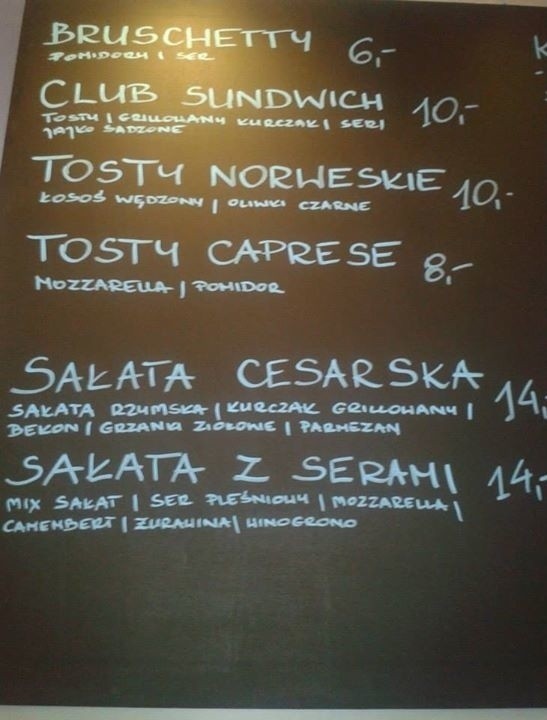 BRUSCHETTY 6,-
POMIDORY | SER
CLUB SUNDWICH 10,-
TOSTY | GRILLOWANY KURCZAK | SER |
JAJKO SADZONE
TOSTY NORWESKIE 10,-
ŁOSOŚ WĘDZONY | OLIWKI CZARNE
TOSTY CAPRESE 8,-
MOZZARELLA | POMIDOR
SAŁATA CESARSKA 14,
SAŁATA RZYMSKA | KURCZAK GRILLOWANY |
BEKON | GRZANKI ZIOŁOWE | PARMEZAN
SAŁATA Z SERAMI 14,-
MIX SAŁAT | SER PLEŚNIOWY | MOZZARELLA |
CAMEMBERT | ŻURAWINA | WINOGRONO